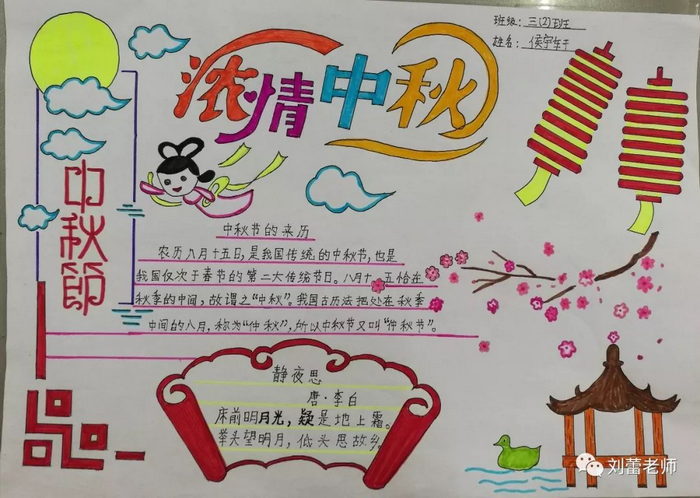 班级：三(2)班
姓名：侯宇轩
浓情中秋
中秋節
中秋节的来历
农历八月十五日，是我国传统的中秋节，也是
我国仅次于春节的第二大传统节日。八月十五恰在
秋季的中间，故谓之“中秋”。我国古历法把处在秋季
中间的八月，称为“仲秋”，所以中秋节又叫“仲秋节”。
静夜思
唐·李白
床前明月光，疑是地上霜。
举头望明月，低头思故乡
刘蕾老师